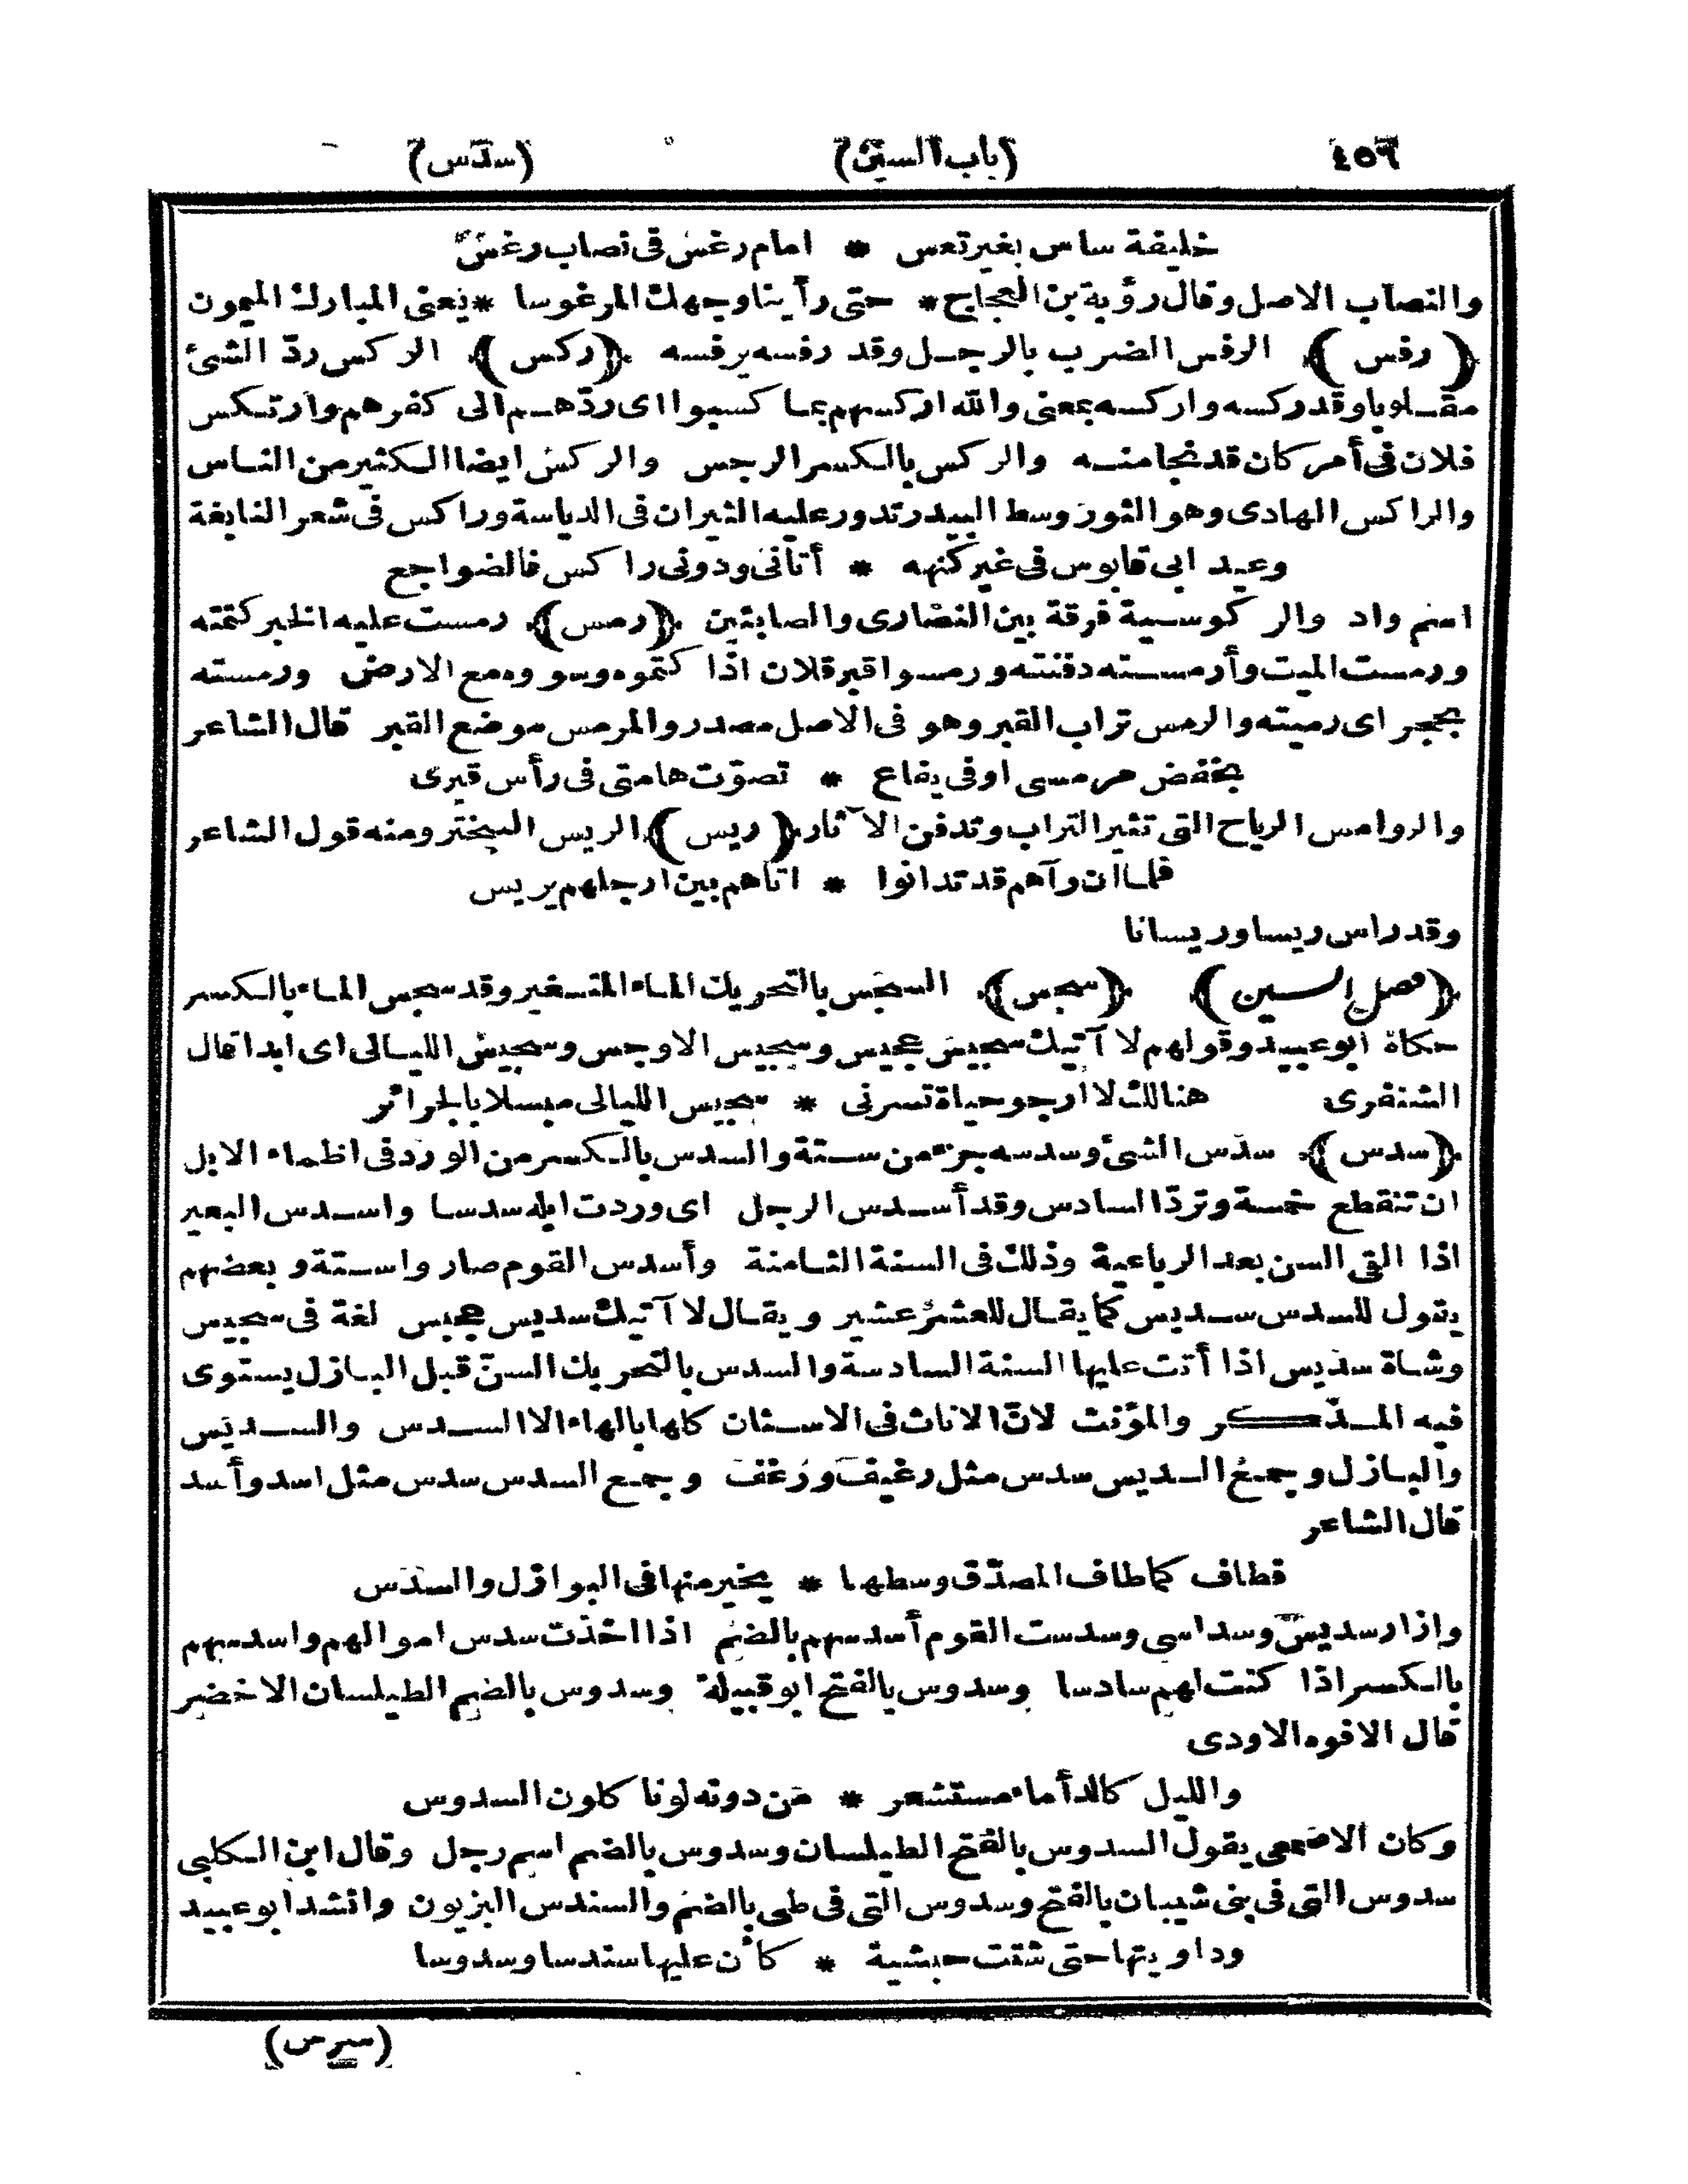 ٤٥٦ (باب السين) (سدس)
خليفة ساس بغير تعس * امام رغس فى نصاب رغس
والنصاب الاصل وقال رؤبة بن العجاج * حتى رأينا وجهك المرغوسا * يعنى المبارك الميمون
﴿رفس﴾ الرفس الضرب بالرجل وقد رفسه يرفسه ﴿ركس﴾ الركس ردّ الشئ
مقلوبا وقد ركسه واركسه بمعنى والله اركسهم بما كسبوا اى ردّهم الى كفرهم وارتكس
فلان فى أمر كان قد نجا منه والركس بالكسر الرجس والركس ايضا الكثير من الناس
والراكس الهادى وهو الثور وسط البيدر تدور عليه الثيران فى الدياسة وراكس فى شعر النابغة
وعيد ابى قابوس فى غير كنهه * أتانى ودونى راكس فالضواجع
اسم واد والركوسية فرقة بين النصارى والصابئين ﴿رمس﴾ رمست عليه الخبر كتمته
ورمست الميت وأرمسته دفنته ورمسوا قبر فلان اذا كتموه وسووه مع الارض ورمسته
بحجر اى رميته والرمس تراب القبر وهو فى الاصل مصدر والمرمس موضع القبر قال الشاعر
بخفض مرمسى او فى يفاع * تصوّت هامتى فى رأس قبرى
والروامس الرياح التى تثير التراب وتدفن الآثار ﴿ريس﴾ الريس التبختر ومنه قول الشاعر
فلما ان رآهم قد تدانوا * اتاهم بين ارجلهم يريس
وقد راس ريسا وريسانا
﴿فصل السين﴾ ﴿سجس﴾ السجس بالتحريك الماء المتغير وقد سجس الماء بالكسر
حكاه ابو عبيد وقولهم لا آتيك سجيس عجيس وسجيس الاوجس وسجيس الليالى اى ابدا قال
الشنفرى هنالك لا ارجو حياة تسرنى * سجيس الليالى مبسلا بالجرائر
﴿سدس﴾ سدس الشئ وسدسه جزء من ستة والسدس بالكسر من الورد فى اظماء الابل
ان تنقطع خمسة وترد السادس وقد أسدس الرجل اى وردت ابله سدسا واسدس البعير
اذا القى السن بعد الرباعية وذلك فى السنة الثامنة وأسدس القوم صاروا ستة وبعضهم
يقول للسدس سديس كما يقال للعشر عشير ويقال لا آتيك سديس عجيس لغة فى سجيس
وشاة سديس اذا أتت عليها السنة السادسة والسدس بالتحريك السنّ قبل البازل يستوى
فيه المذّكر والمؤنث لانّ الاناث فى الاسنان كلها بالهاء الا السدس والسديس
والبازل وجمع السديس سدس مثل رغيف ورغف وجمع السدس سدس مثل اسد وأسد
قال الشاعر
فطاف كما طاف المصدّق وسطها * يخير منها فى البوازل والسدس
وازار سديس وسداسى وسدست القوم أسدسهم بالضم اذا اخذت سدس اموالهم واسدسهم
بالكسر اذا كنت لهم سادسا وسدوس بالفتح ابو قبيلة وسدوس بالضم الطيلسان الاخضر
قال الافوه الاودى
والليل كالدأماء مستشعر * من دونه لونا كلون السدوس
وكان الاصمعى يقول السدوس بالفتح الطيلسان وسدوس بالضم اسم رجل وقال ابن الكلبى
سدوس التى فى بنى شيبان بالفتح وسدوس التى فى طى بالضم والسندس البزيون وانشد ابو عبيد
وداويتها حتى شتت حبشية * كأن عليها سندسا وسدوسا
(سرس)